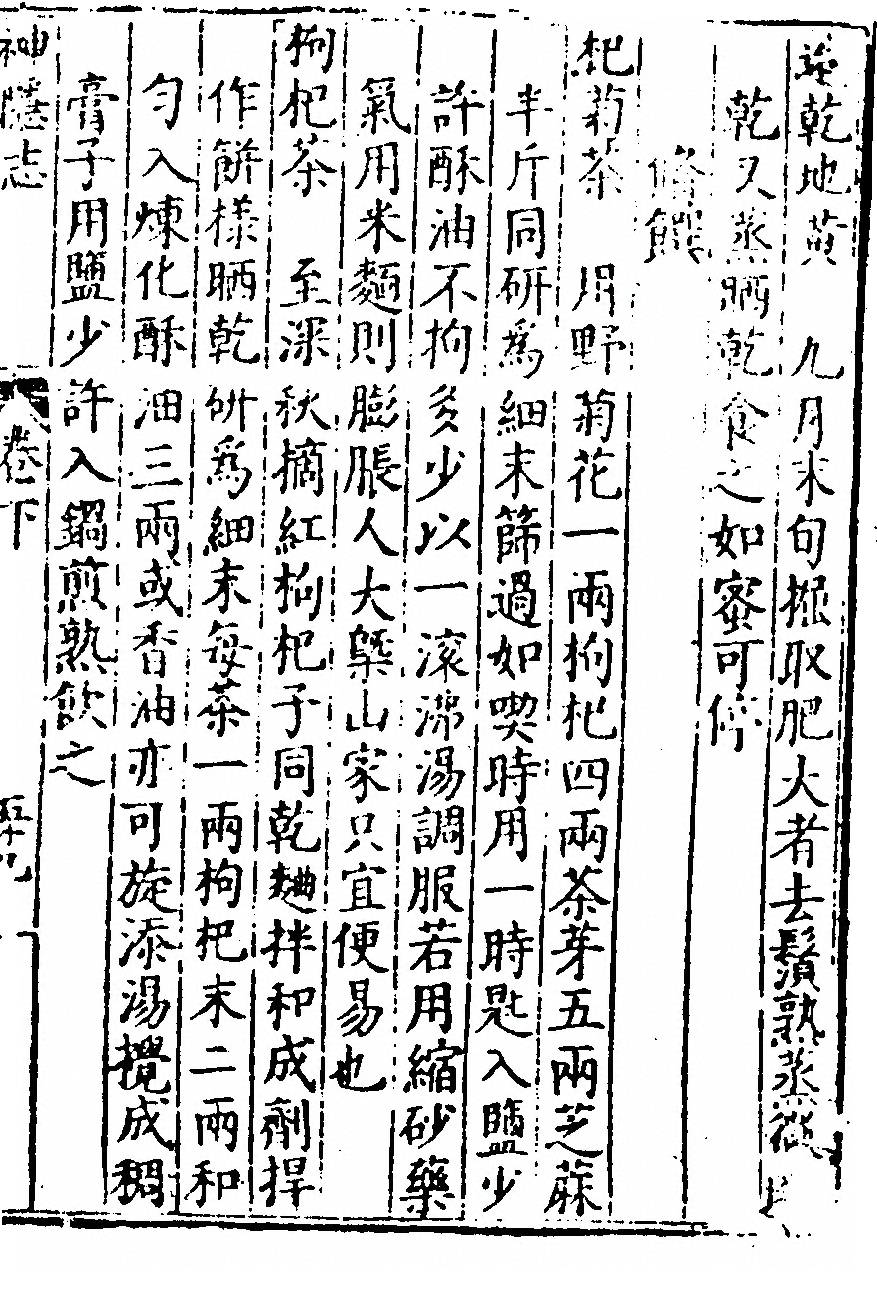 乾地黄　九月末旬掘取肥大者去鬚熟蒸微
乾又蒸晒乾食之如蜜可停
脩饌
杞菊茶　用野菊花一兩枸杞四兩茶芽五兩芝蔴
半斤同研爲細末篩過如喫時用一時匙入鹽少
許酥油不拘多少以一滚沸湯調服若用縮砂藥
氣用米麵則膨脹人大槩山家只宜便易也
枸杞茶　至深秋摘紅枸杞子同乾麯拌和成劑捍
作餅樣晒乾研爲細末每茶一兩枸杞末二兩和
匀入煉化酥油三兩或香油亦可旋添湯攪成稠
膏子用鹽少許入鍋煎熟飲之
神隱志　卷下　五十九